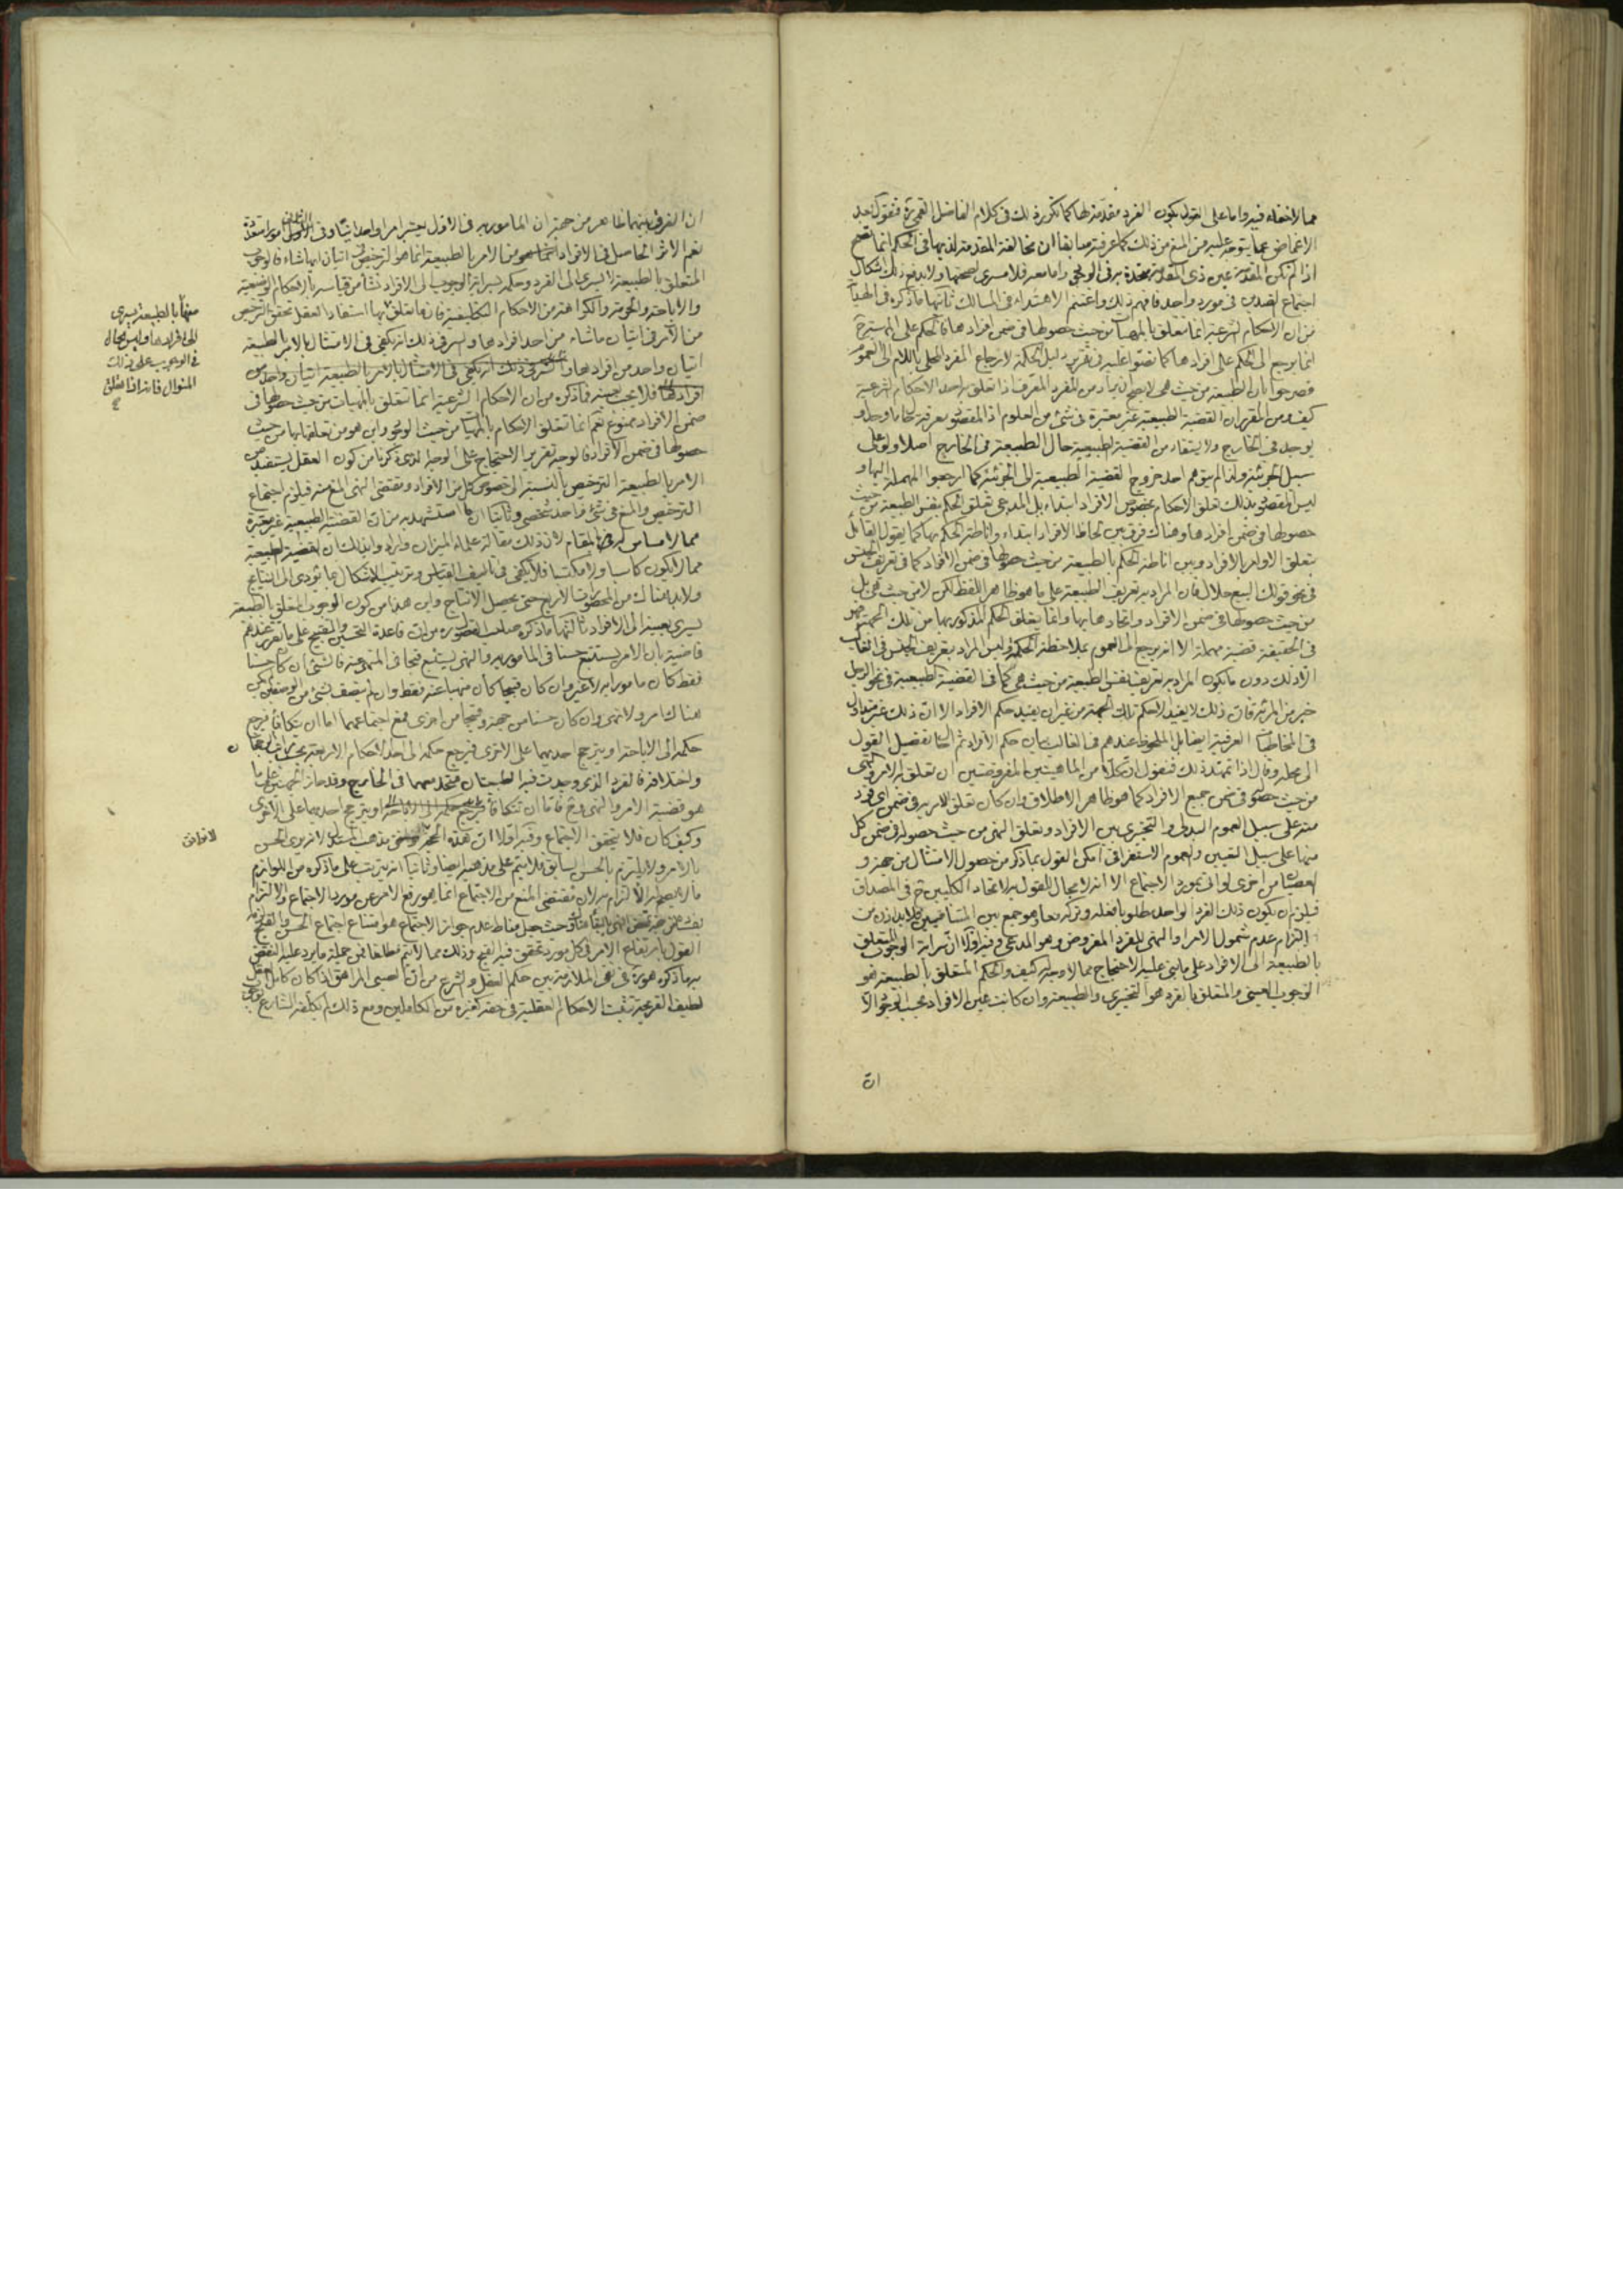 مما لا خفاء فيه واما على القول بكون الفرد مقدمة لها كما تكرر ذلك في كلام الفاضل القمي ره فنقول بعد
الاغماض عما يتوجه عليه من المنع من ذلك كما عرفته سابقا ان مخالفة المقدمة لذيها في الحكم انما تصح
اذا لم تكن المقدمة عين ذي المقدمة متحدة به في الوجود واما معه فلا مسرى لصحتها ولا يندفع ذلك اشكال
اجتماع الضدين في مورد واحد فافهم ذلك واغتنم الاهتداء في المسالك ثانيها ما ذكره في الهداية
من ان الاحكام الشرعية انما تتعلق بالمهيات من حيث حصولها في ضمن افرادها فالحكم على
انما يرجع الى الحكم على افرادها كما نصوا عليه في تقرير دليل الحكمة لارجاع المفرد المحلى باللام الى العموم
فصرحوا بان الطبيعة من حيث هي لا يصح ان يراد من المفرد المعرف اذا تعلق به احد الاحكام الشرعية
كيف ومن المقرر ان القضية الطبيعية غير معتبرة في شئ من العلوم اذ المقصود معرفة
يوجد في الخارج ولا يستفاد من القضية الطبيعية حال الطبيعة في الخارج اصلا ولو على
سبيل الجزئية ولذا لم يتوهم احد خروج القضية الطبيعية الى الجزئية كما ارجعوا المهملة اليها و
ليس المقصود بذلك تعلق الاحكام بخصوص الافراد ابتداء بل المدعى تعلق الحكم بنفس الطبيعة من حيث
حصولها في ضمن افرادها وهناك فرق بين لحاظ الافراد ابتداء واناطة الحكم بها كما يقول القائل
بتعلق الاوامر بالافراد وبين اناطة الحكم بالطبيعة من حيث حصولها في ضمن الافراد كما في تعريف الجنس
في نحو قولك البيع حلال فان المراد به تعريف الطبيعة على ما هو ظاهر اللفظ لكن لا من حيث هي بل
من حيث حصولها في ضمن الافراد واتحادها بها وانما يتعلق الحكم المذكور بها من تلك الجهة فهو
في الحقيقة قضية مهملة الا انه يرجع الى العموم بملاحظة الحكمة وليس المراد بتعريف الجنس في الغالب
الا ذلك دون ما يكون المراد به تعريف نفس الطبيعة من حيث هي كما في القضية الطبيعية في نحو الرجل
خير من المرئة فان ذلك لا يفيد الا حكم تلك الجهة من غير ان يفيد حكم الافراد الا ان ذلك غير متداول
في المخاطبات العرفية اذ المقابل الملحوظ عندهم في الغالب بيان حكم الافراد ثم تفصيل القول
الى محله وقال اذا تمهد ذلك فنقول ان كلا من الماهيتين المفروضتين ان تعلق به الامر والنهي
من حيث حصوله في ضمن جميع الافراد كما هو ظاهر الاطلاق وان كان تعلق الامر به في ضمن اي فرد
منه على سبيل العموم البدلي والتخيير بين الافراد وتعلق النهي من حيث حصوله في ضمن كل
منها على سبيل التعيين والعموم الاستغراقي امكن القول بما ذكر من حصول الامتثال من جهة و
العصيان من اخرى لو اتى بمورد الاجتماع الا انه لا مجال للقول به لاتحاد الكليين ح في المصداق
فيلزم ان يكون ذلك الفرد الواحد مطلوبا فعله وتركه معا وهو جمع بين المتنافيين فلا بد اذن من
التزام عدم شمول الامر او النهي للفرد المفروض وهو المدعى وفيه اولا ان سراية الوجوب المتعلق
بالطبيعة الى الافراد على ما بنى عليه الاحتجاج مما لا وجه له كيف والحكم المتعلق بالطبيعة هو
الوجوب العيني والمتعلق بالفرد هو التخييري والطبيعة وان كانت عين الافراد بحسب الوجود الا
ان
ان الفرق بينهما ظاهر من جهة ان المامور به في الاول يعتبر امرا واحدا وفي الثاني امورا متعددة
نعم الاثر الحاصل في الافراد من الامر بالطبيعة انما هو الترخيص في اتيان ايها شاء فالوجوب
المتعلق بالطبيعة لا يسري الى الفرد وحكمه بسراية الوجوب الى الافراد نشأ من قياسه بالاحكام الوضعية
والاباحة والحرمة والكراهة من الاحكام التكليفية فان ما تعلق بها استفاد العقل تحقق الترخيص
من الآمر في اتيان ما شاء من احد افرادها والسر في ذلك انه يكفي في الامتثال بالامر بالطبيعة
اتيان واحد من افرادها والسر في ذلك انه يكفي في الامتثال بالامر بالطبيعة اتيان واحد من
افرادها فلا يجب بعينه فما ذكره من ان الاحكام الشرعية انما تتعلق بالمهيات من حيث حصولها في
ضمن الافراد ممنوع نعم انما تتعلق الاحكام بالمهيات من حيث الوجود واين هو من تعلقها بها من حيث
حصولها في ضمن الافراد فالوجه تقرير الاحتجاج على الوجه الذي ذكرنا من كون العقل يستفيد من
الامر بالطبيعة الترخيص بالنسبة الى خصوص كل من الافراد ومقتضى النهي المنع منه فيلزم اجتماع
الترخيص والمنع في شئ واحد شخصي وثانيا ان ما استشهد به من ان القضية الطبيعية غير معتبرة
مما لا مساس له بالمقام لان ذلك مقالة علماء الميزان وارادوا بذلك ان القضية الطبيعية
مما لا يكون كاسبا ولا مكتسبا فلا يكفي في تاليف القياس وترتيب الاشكال عما تؤدى الى النتايج
ولا بد هناك من المحصورات الاربع حتى يحصل الانتاج واين هذا من كون الوجوب المتعلق بالطبيعة
يسري بعينه الى الافراد ثالثها ما ذكره صاحب الفصول ره من ان قاعدة التحسين والتقبيح على ما تقرر عندهم
قاضية بان الامر يستتبع حسنا في المامور به والنهي يستتبع قبحا في المنهي عنه فالشئ ان كان حسنا
فقط كان مامورا به لا غير وان كان قبيحا كان منهيا عنه فقط وان لم يتصف بشئ من الوصفين لم يكن
هناك امر ولا نهي وان كان حسنا من جهة وقبيحا من اخرى فمع اجتماعهما اما ان يتكافئا فيرجع
حكمه الى الاباحة او يترجح احديهما على الاخرى فيرجع حكمه الى احد الاحكام الاربعة
واختلافه فالفرد الذي وجدت فيه الطبيعتان متحد معهما في الخارج وقد حاز الجهتين على ما
هو قضية الامر والنهي وح فاما ان تتكافئا فيرجع حكمه الى الاباحة او يترجح احديهما على الاخرى
وكيف كان فلا يتحقق الاجتماع وفيه اولا ان هذه الحجة لا توافق مذهب المستدل لانه يرى الحسن
بالامر ولا يلتزم بالحسن السابق فلا يتم على مذهبه ايضا وثانيا انه يترتب على ما ذكره من اللوازم
ما لا يصح له الالتزام به لان مقتضى المنع من الاجتماع انما هو رفع الامر عن مورد الاجتماع والالتزام
وحيث جعل مناط عدم جواز الاجتماع هو امتناع اجتماع الحسن والقبح لزمه
القول بارتفاع الامر في كل مورد تحقق فيه القبح وذلك مما لا يتم مطلقا فمن جملة ما يرد عليه النقض
به ما ذكره هو ره في نفي الملازمة بين حكم العقل والشرع من ان الصبي المراهق اذا كان كامل العقل
لطيف القريحة تثبت الاحكام العقلية في حقه كغيره من الكاملين ومع ذلك لم يكلفه الشارع
منها بالطبيعة يسري
الى افرادها وليس الحال
في الوجوب على ذلك
المنوال فانه اذا تعلق
لا توافق